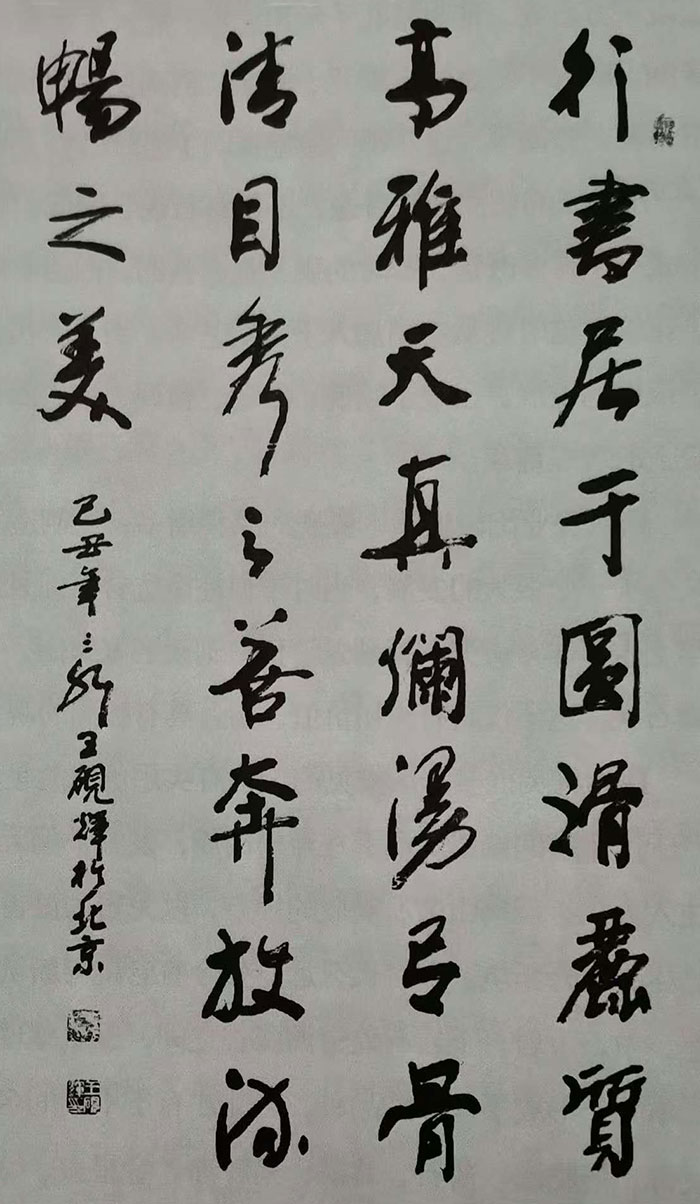 行書居于圓滑麗質
高雅天真爛漫
清目之善奔放流
暢之美
己丑年之秋王硯輝於北京